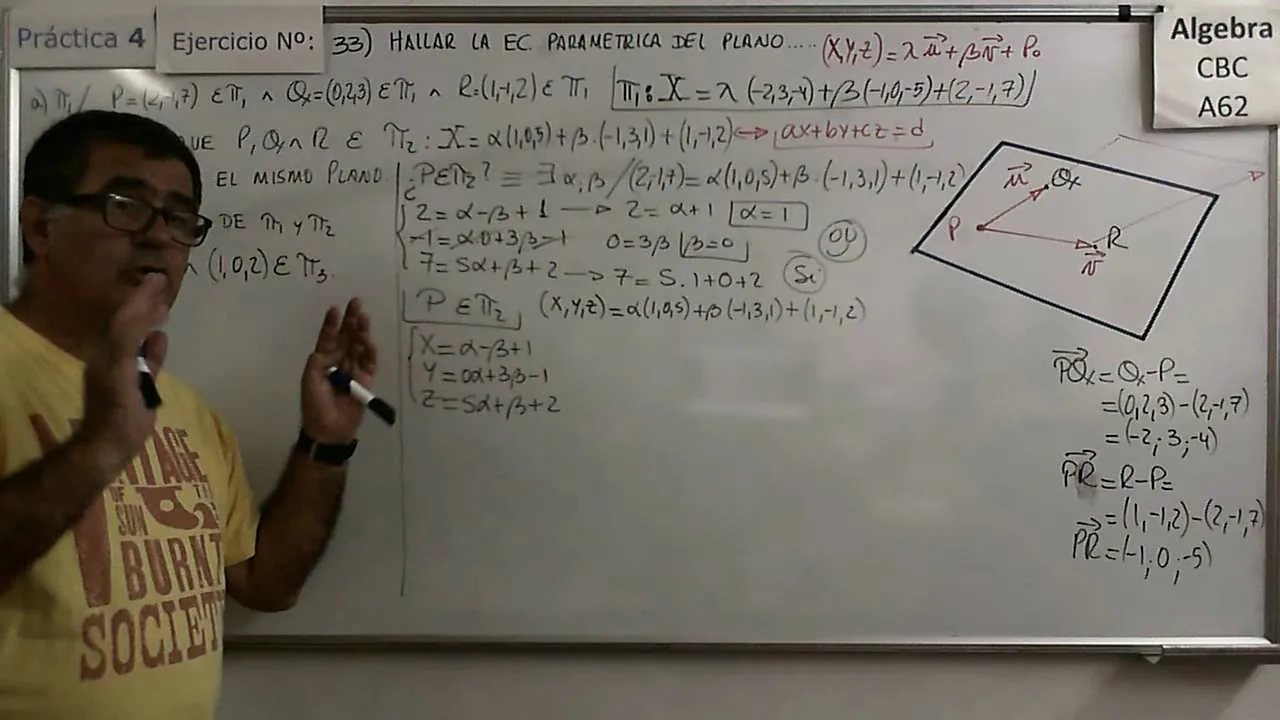 Práctica 4
Ejercicio Nº:
33) HALLAR LA EC. PARAMETRICA DEL PLANO..... (X,Y,Z)=λu⃗+βv⃗+P₀
Algebra
CBC
A62
a) π₁/ P=(2,-1,7) ∈ π₁ ∧ Q=(0,2,3) ∈ π₁ ∧ R=(1,-1,2) ∈ π₁ π₁: X=λ(-2,3,-4)+β(-1,0,-5)+(2,-1,7)
QUE P, Q ∧ R ∈ π₂: X=α(1,0,5)+β.(-1,3,1)+(1,-1,2)↔ax+by+cz=d
EL MISMO PLANO.
¿P∈π₂? ≡ ∃α,β/(2,-1,7)=α(1,0,5)+β.(-1,3,1)+(1,-1,2)
DE π₁ y π₂
∧ (1,0,2) ∈ π₃.
2=α-β+1 → 2=α+1 α=1
-1=α.0+3β-1 0=3β β=0
7=5α+β+2 → 7=5.1+0+2 Si
P ∈ π₂ (X,Y,Z)=α(1,0,5)+β(-1,3,1)+(1,-1,2)
X=α-β+1
Y=0α+3β-1
Z=5α+β+2
u⃗
Q
P
R
v⃗
PQ⃗=Q-P=
=(0,2,3)-(2,-1,7)
=(-2;3;-4)
PR⃗=R-P=
=(1,-1,2)-(2,-1,7)
PR⃗=(-1;0;-5)
VINTAGE
OF
SUN
BURNT
SOCIETY